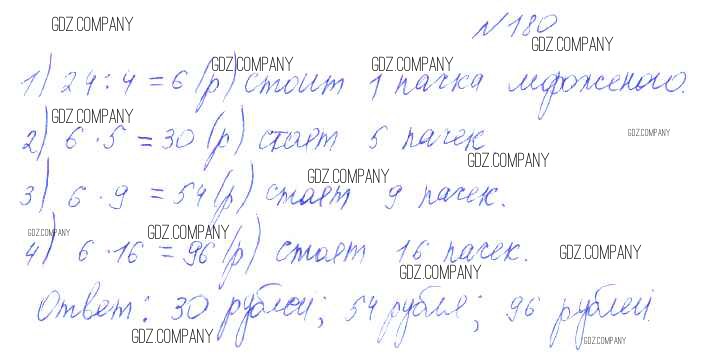 GDZ.COMPANY
№180
GDZ.COMPANY
GDZ.COMPANY GDZ.COMPANY
1) 24 : 4 = 6 (р) стоит 1 пачка мороженого.
GDZ.COMPANY
2) 6 · 5 = 30 (р) стоят 5 пачек
GDZ.COMPANY
GDZ.COMPANY
GDZ.COMPANY
3) 6 · 9 = 54 (р) стоят 9 пачек.
GDZ.COMPANY GDZ.COMPANY
4) 6 · 16 = 96 (р) стоят 16 пачек.
GDZ.COMPANY
GDZ.COMPANY
Ответ: 30 рублей; 54 рубля; 96 рублей.
GDZ.COMPANY
GDZ.COMPANY